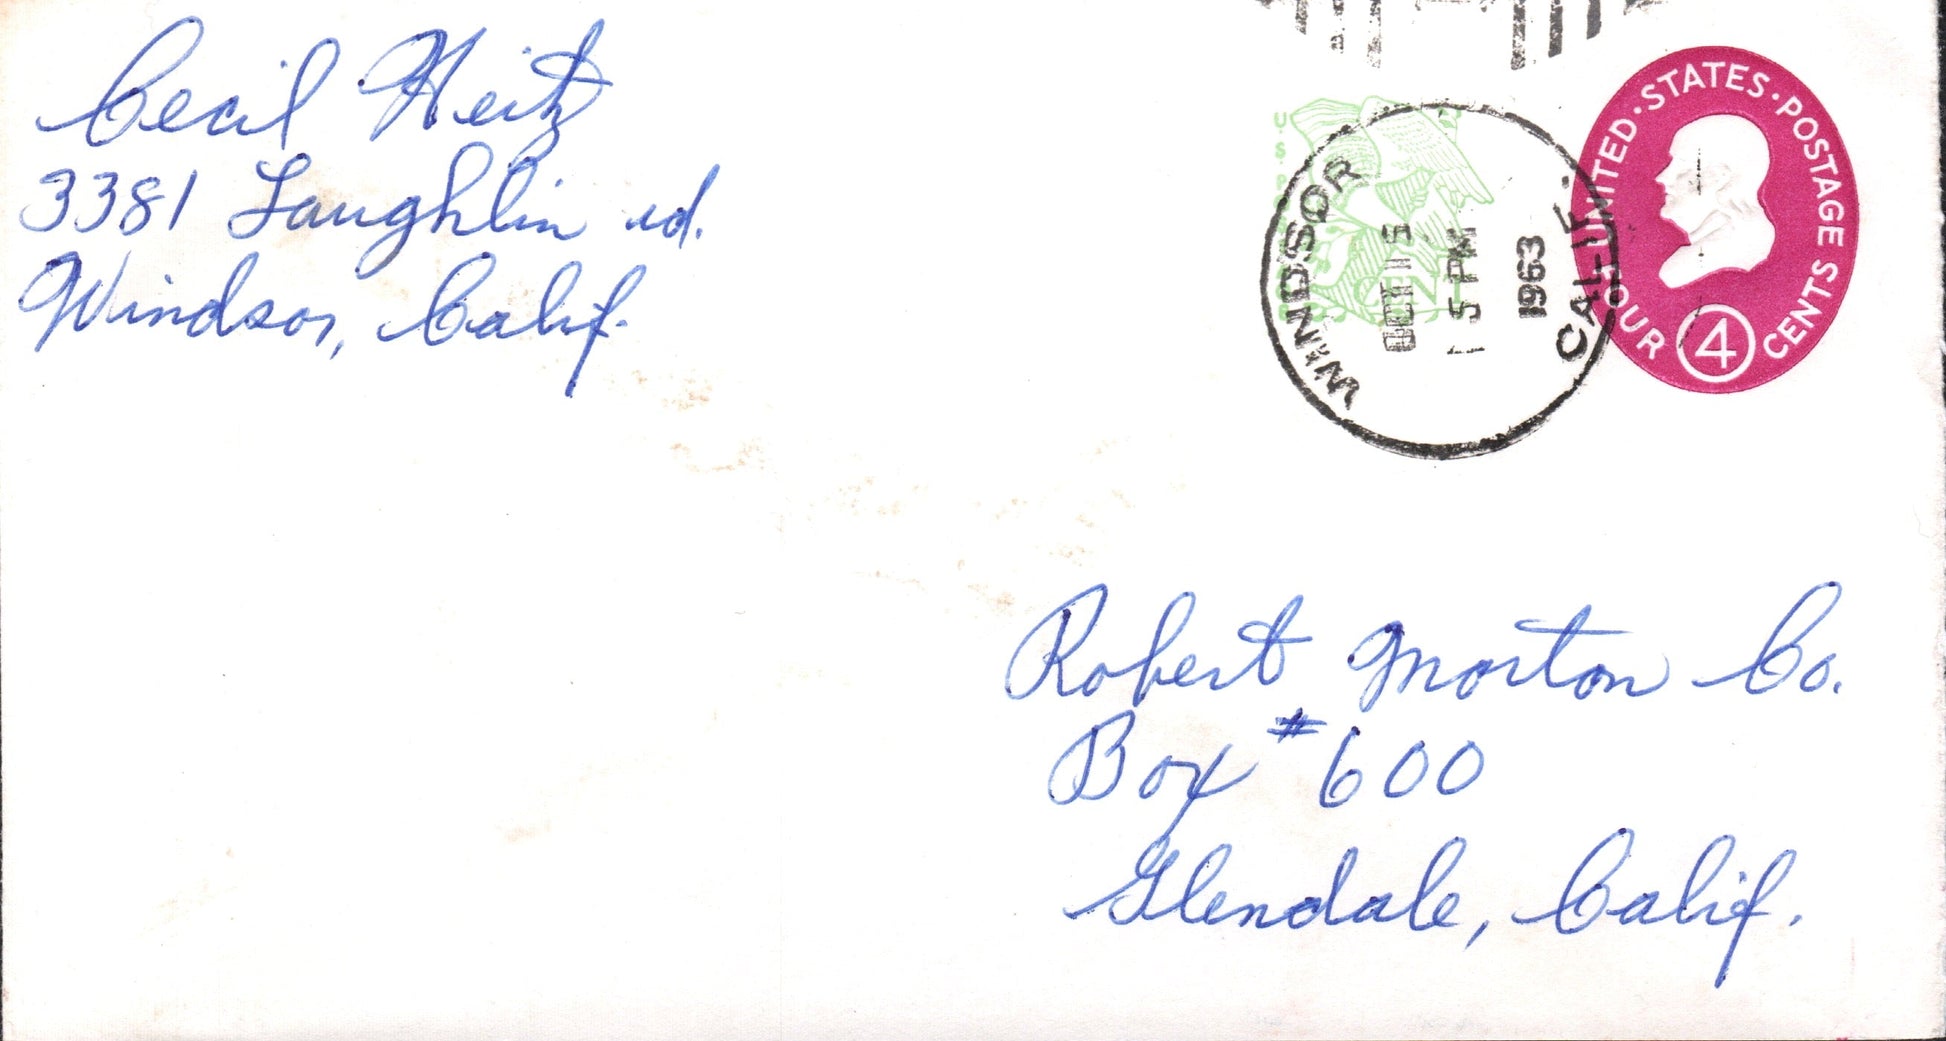 Cecil Heitz
3381 Laughlin rd.
Windsor, Calif.
U.S. P
CENT
WINDSOR
CALIF.
OCT 15
5 PM
1963
UNITED · STATES · POSTAGE
FOUR 4 CENTS
Robert Morton Co.
Box # 600
Glendale, Calif.